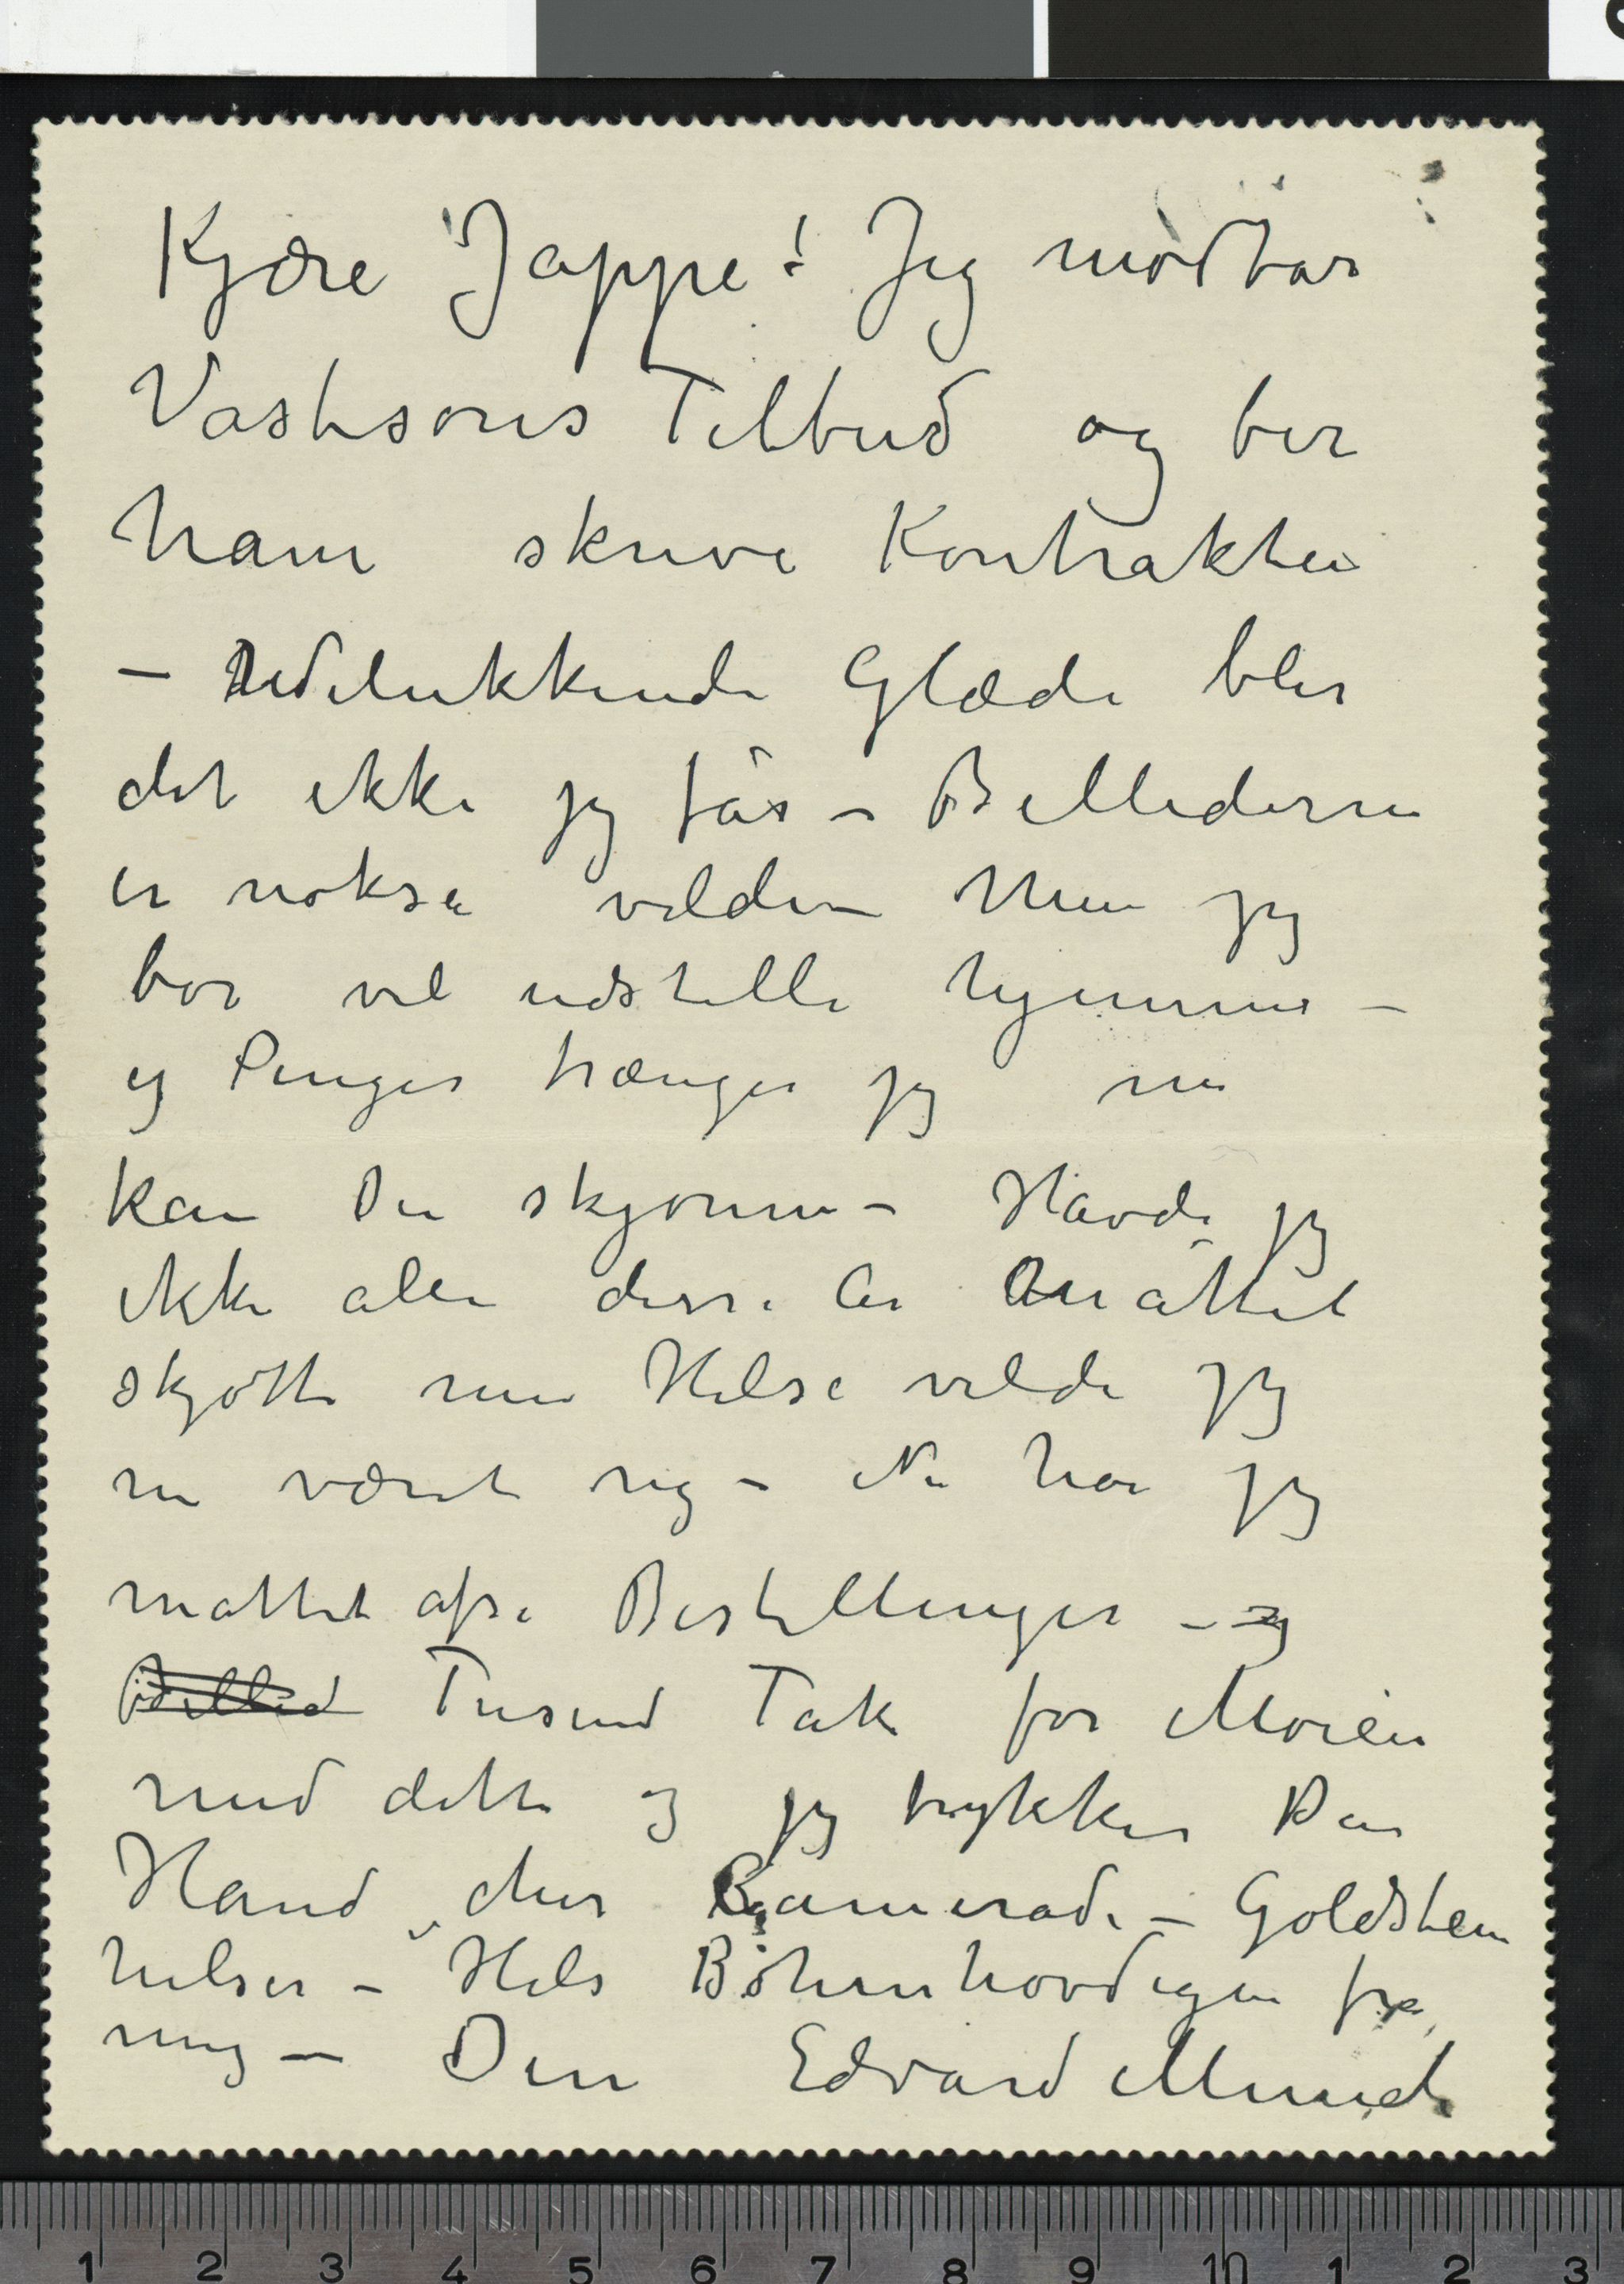 Kjære Jappe! Jeg modtar
Tilbud og ber
ham skrive Kontrakten
– Udelukkende Glæde blir
det ikke jeg får – Billederne
er noksa vilde – Men jeg
bør vel udstille hjemme –
og Penger trænger jeg nu
kan Du skjønne – Havde jeg
ikke alle disse År måttet
skjøtte min Helse vilde jeg
nu været rig – Nu har jeg
måttet afse Bestillinger – og
Billed Tusind Tak for Moien
med dette og jeg trykker Din
Hånd, du Kamerad – Goldstein
hilser – Hils fra
mig – Din Edvard Munch
1 2 3 4 5 6 7 8 9 10 1 2 3